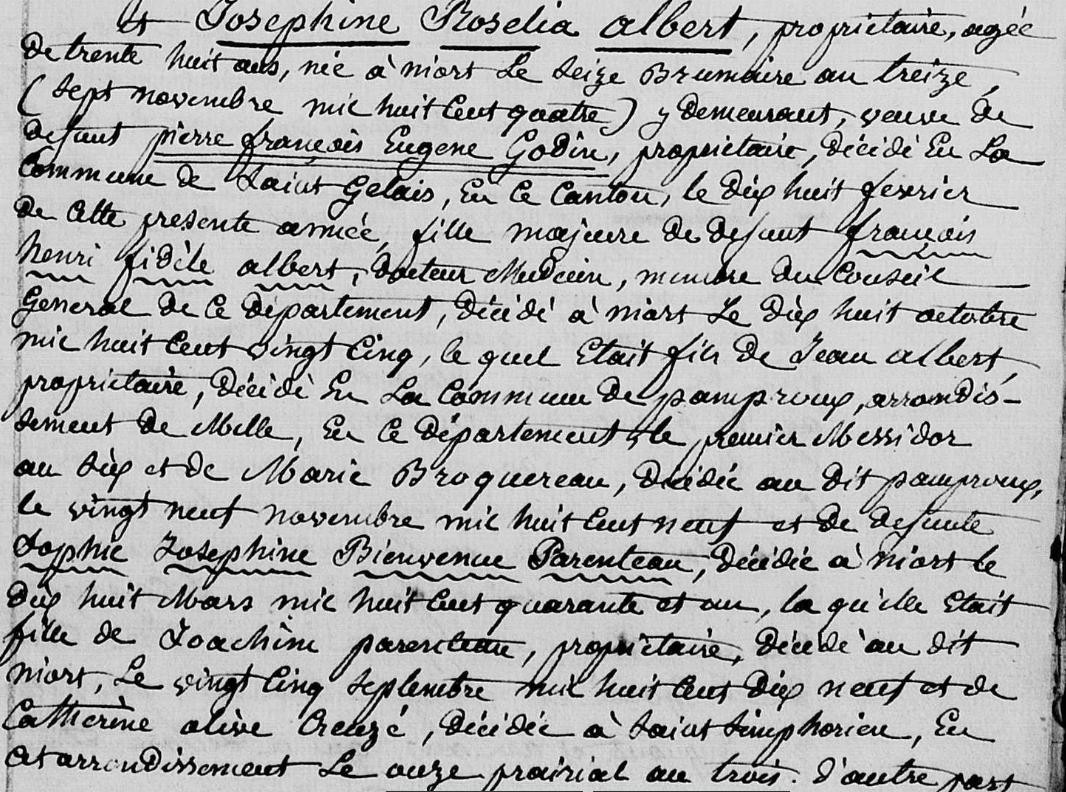 Et Josephine Roselia albert, propriétaire, agée
de trente huit ans, née à niort le seize Brumaire an treize,
(sept novembre mil huit Cent quatre) y demeurant, veuve de
defunt pierre françois Eugene Godin, propriétaire, décédé En La
Commune de Saint Gelais, En Ce Canton, le dix huit fevrier
de Cette presente année, fille majeure de defunt françois
henri fidèle albert, docteur Medecin, membre du Conseil
General de Ce département, décédé à niort Le dix huit octobre
mil huit Cent vingt Cinq, le quel Etait fils de Jean albert,
propriétaire, décédé En La Commune de pamproux, arrondis-
sement de Melle, En Ce département, le premier Messidor
an six et de Marie Broquereau, décédée au dit pamproux,
le vingt neuf novembre mil huit Cent neuf et de defunte
Sophie Josephine Bienvenue Parenteau, décédée à niort le
dix huit Mars mil huit Cent quarante et un, la qu'elle Etait
fille de Joachim parenteau, propriétaire, décédé au dit
niort, Le vingt Cinq Septembre mil huit Cent dix neuf et de
Catherine olive Creuzé, décédée à Saint Simphorien, En
Cet arrondissement Le onze prairial an trois. d'autre part